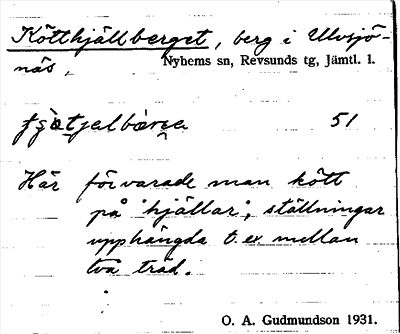 Kötthjällberget, berg i Ulvsjö-
näs, Nyhems sn, Revsunds tg, Jämtl. l.
51
Här förvarade man kött
på "hjällar", ställningar
upphängda t. ex. mellan
två träd.
O. A. Gudmundson 1931.